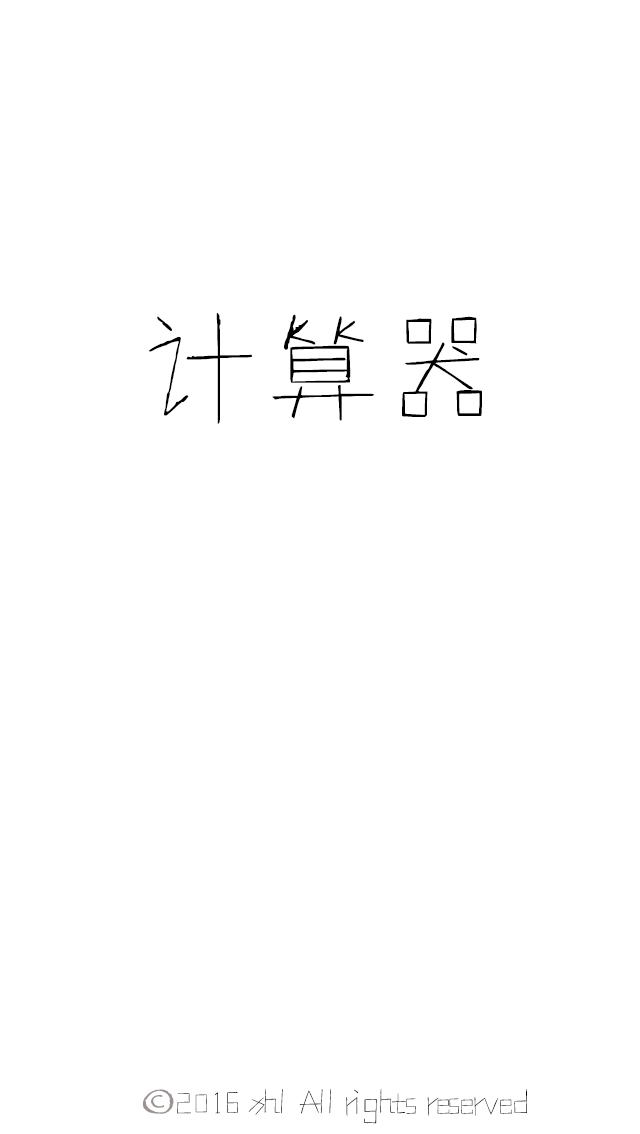 计算器
©2016 xhl All rights reserved